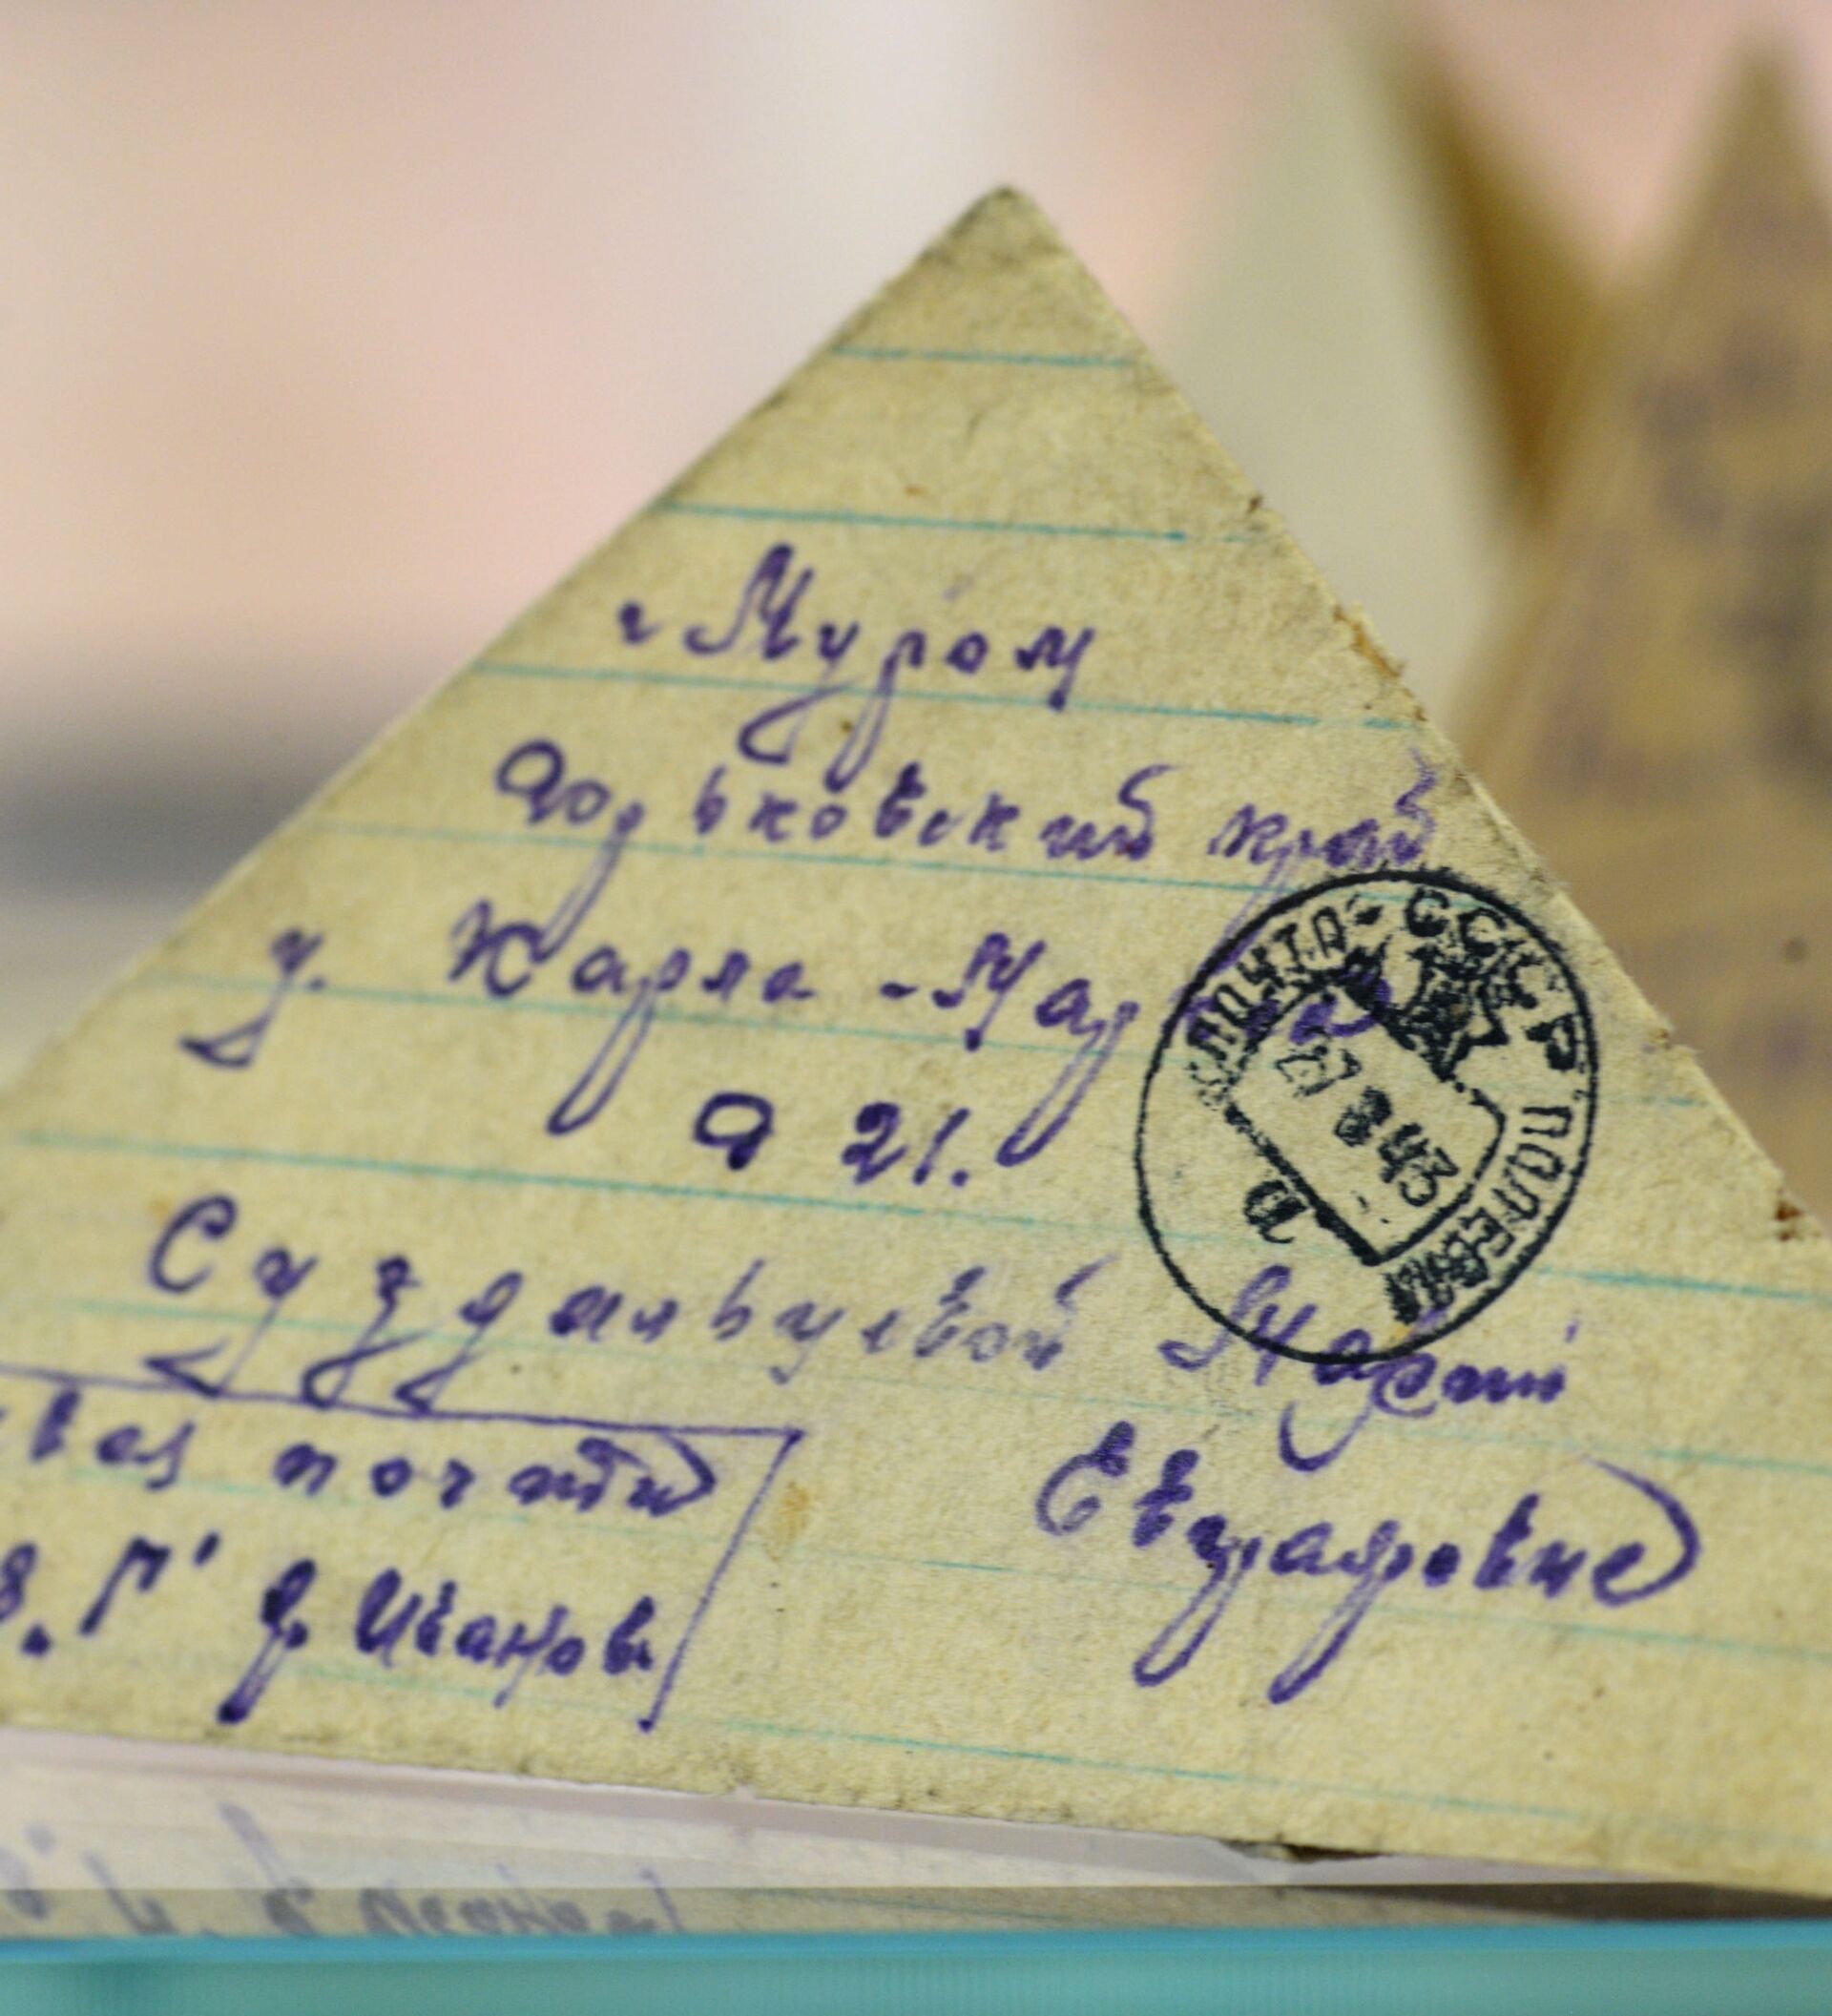 г Муром
Горьковский край
у. Карла-Маркса
Д 21.
Суздальцевой Марии
Евграфовне
почта
8. Г' Д. Иванов.
ПОЧТА СССР ПОЛЕВАЯ
27 8 43
а